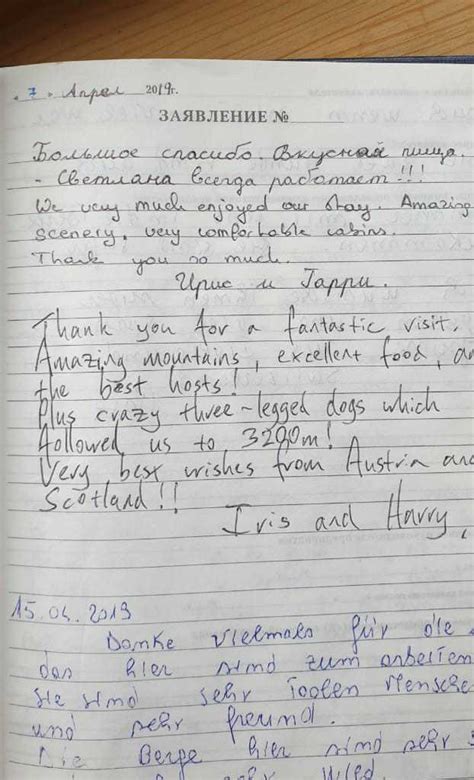 7. Апрел 2019г.
ЗАЯВЛЕНИЕ №
Большое спасибо. Вкусная пища.
- Светлана всегда работает!!!
We very much enjoyed our stay. Amazing
scenery, very comfortable cabins.
Thank you so much.
Ирис и Гарри.
Thank you for a fantastic visit.
Amazing mountains, excellent food, an
the best hosts!
Plus crazy three-legged dogs which
followed us to 3200m!
Very best wishes from Austria and
Scotland!!
Iris and Harry,
15.04.2019
Danke vielmals für die
das hier sind zum arbeiten
Sie sind sehr Toolen Mensche
und sehr freund.
Die Berge hier sind sehr s
sehr Wild.